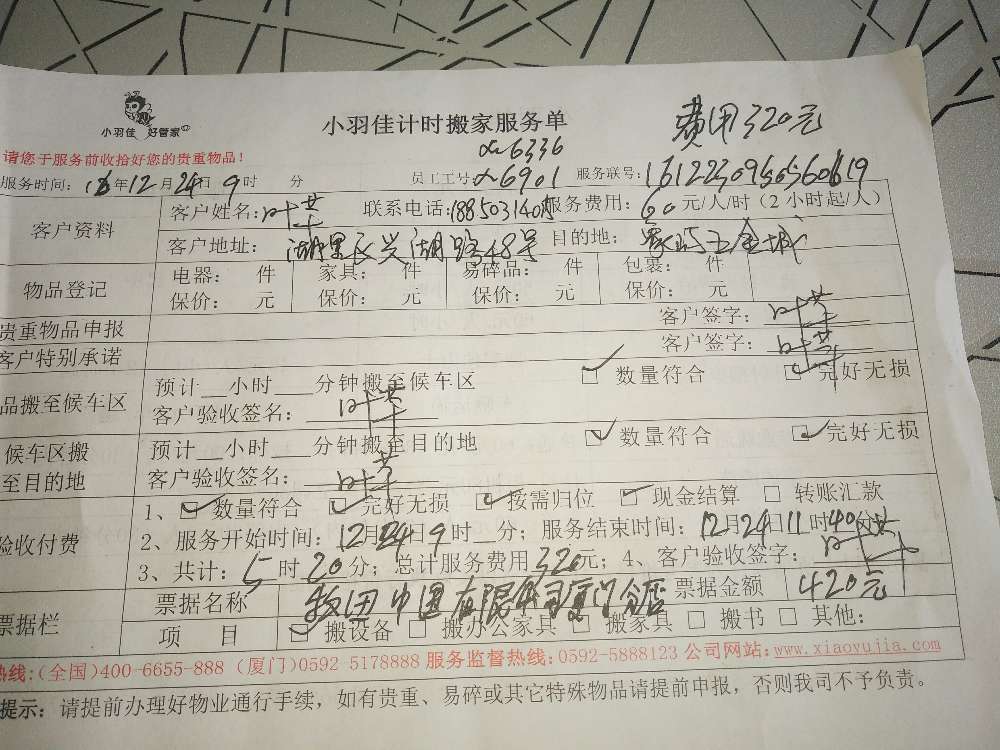 小羽佳 好管家
小羽佳计时搬家服务单
费用320元
请您于服务前收拾好您的贵重物品!
6336
服务时间: 16年12月24日9时 分 员工工号: 6901 服务联号: 16122309505560619
客户资料 客户姓名: 叶苹 联系电话: 服务费用: 60元/人/时(2小时起/人)
客户地址: 湖里长兴湖路48号 目的地:
物品登记 电器: 件 家具: 件 易碎品: 件 包裹: 件
保价: 元 保价: 元 保价: 元 保价: 元
贵重物品申报 客户签字: 叶苹
客户特别承诺 客户签字: 叶苹
品搬至候车区 预计__小时___分钟搬至候车区 数量符合 完好无损
客户验收签名: 叶苹
候车区搬 预计__小时___分钟搬至目的地 数量符合 完好无损
至目的地 客户验收签名: 叶苹
1、 数量符合 完好无损 按需归位 现金结算 转账汇款
验收付费 2、服务开始时间: 12月24日9时__分; 服务结束时间: 12月24日11时40分
3、共计: 5时20分; 总计服务费用320元; 4、客户验收签字: 叶苹
票据栏 票据名称 中国有限公司厦门分 票据金额 420元
项 目 搬设备 搬办公家具 搬家具 搬书 其他:
热线:(全国)400-6655-888 (厦门)0592 5178888 服务监督热线:0592-5888123 公司网站:www.xiaoyujia.com
提示: 请提前办理好物业通行手续, 如有贵重、易碎或其它特殊物品请提前申报, 否则我司不予负责。